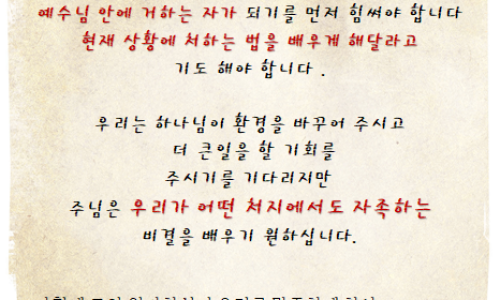 예수님 안에 거하는 자가 되기를 먼저 힘써야 합니다
현재 상황에 처하는 법을 배우게 해달라고
기도 해야 합니다 .
우리는 하나님이 환경을 바꾸어 주시고
더 큰일을 할 기회를
주시기를 기다리지만
주님은 우리가 어떤 처지에서도 자족하는
비결을 배우기 원하십니다.